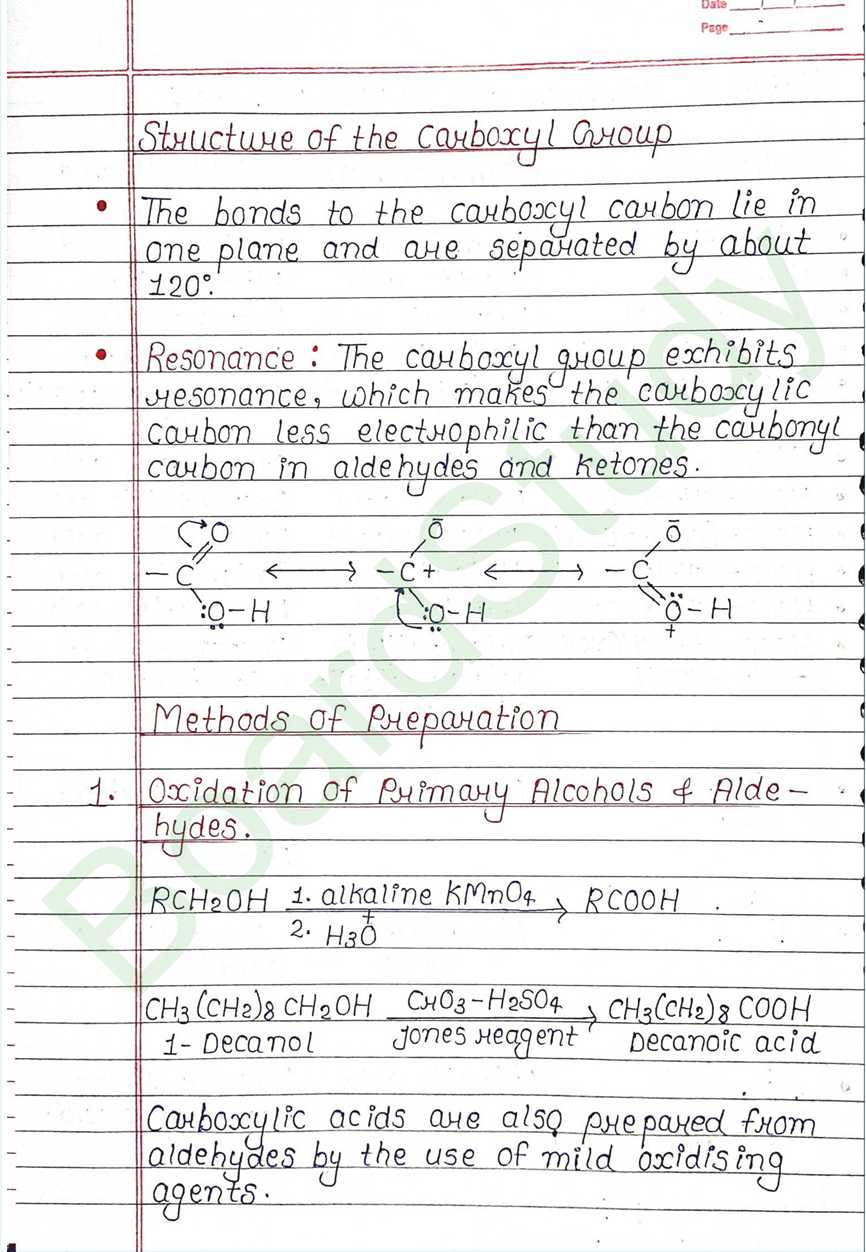 Date
Page
Structure of the Carboxyl Group
• The bonds to the carboxyl carbon lie in
one plane and are separated by about
120°.
• Resonance : The carboxyl group exhibits
resonance, which makes the carboxylic
carbon less electrophilic than the carbonyl
carbon in aldehydes and ketones.
O Ō Ō
–C ⟷ –C+ ⟷ –C
:Ö–H :Ö–H Ö–H
+
Methods of Preparation
1. Oxidation of Primary Alcohols & Alde–
hydes.
RCH2OH 1. alkaline KMnO4 → RCOOH
2. H3O+
CH3(CH2)8CH2OH CrO3–H2SO4 → CH3(CH2)8COOH
1- Decanol Jones reagent Decanoic acid
Carboxylic acids are also prepared from
aldehydes by the use of mild oxidising
agents.
BoardStudy